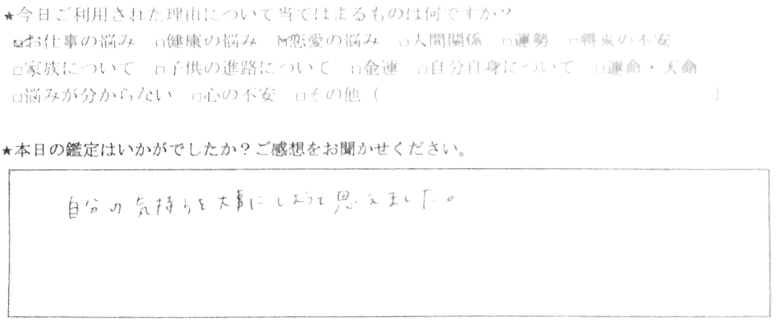 ★今日ご利用された理由について当てはまるものは何ですか？
☑お仕事の悩み □健康の悩み ☑恋愛の悩み □人間関係 □運勢 □将来の不安
□家族について □子供の進路について □金運 □自分自身について □運命・天命
□悩みが分からない □心の不安 □その他（　　　　　）
★本日の鑑定はいかがでしたか？ご感想をお聞かせください。
自分の気持ちを大事にしようと思えました。